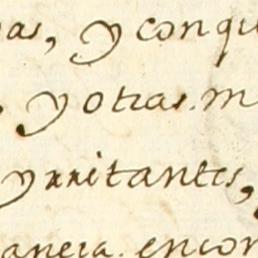 as, y conqu
y otras. m
yrritantes,
anera. encon